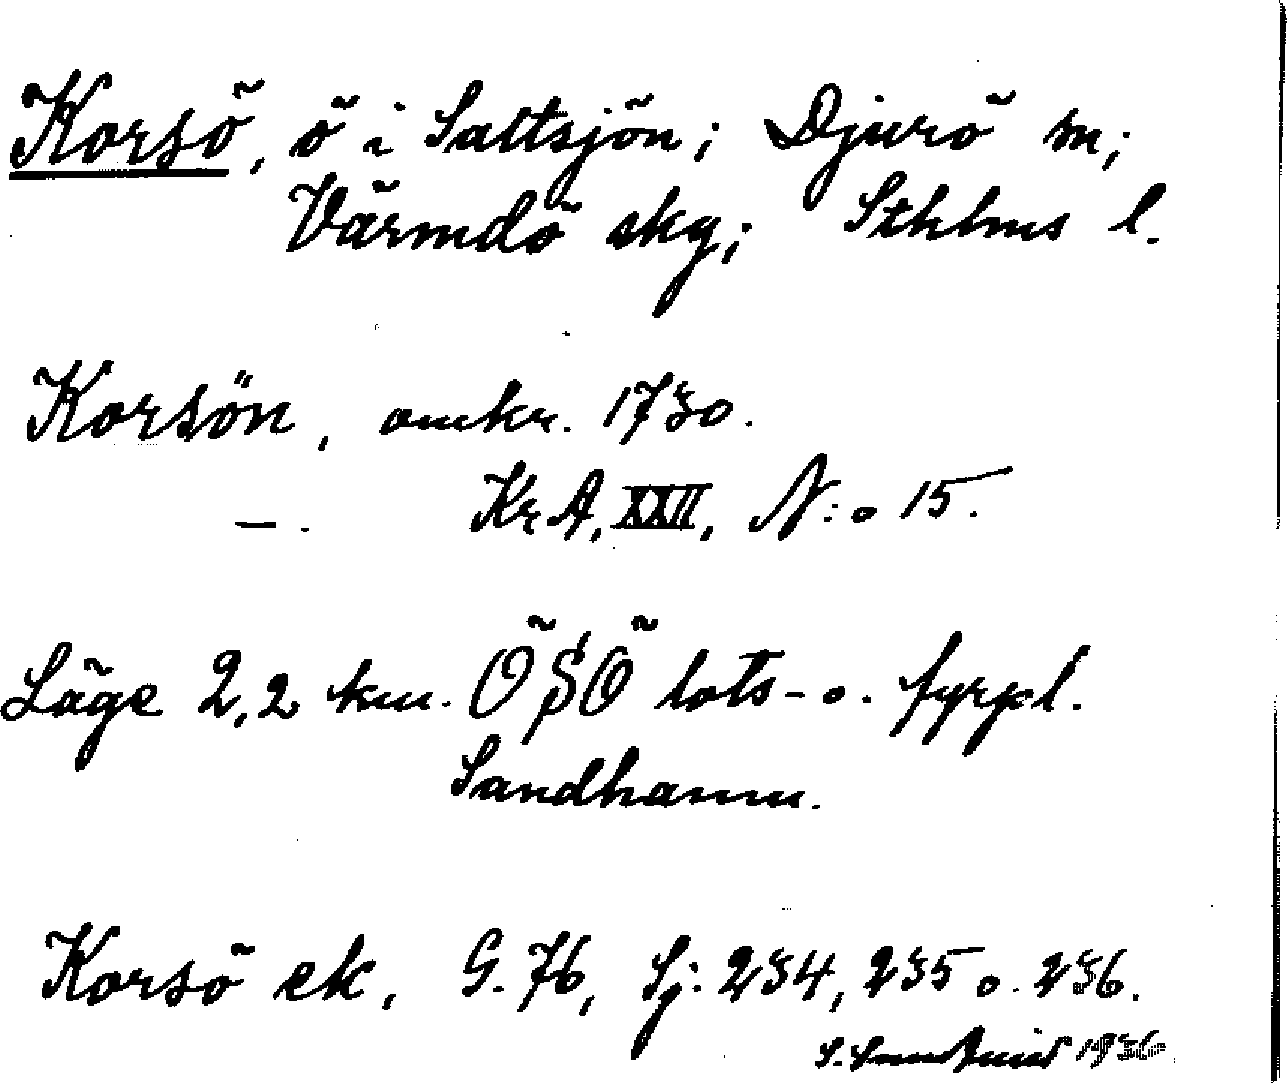 Korsö, ö i Saltsjön; Djurö sn;
Värmdö skg; Sthlms l.
Korsön, omkr. 1730.
—. KrA, XXII, N:o 15.
Läge 2,2 km. ÖSÖ lots- o. fyrpl.
Sandhamn.
Korsö ek, G. 76, Sj: 234, 235 o. 236.
S. 1936